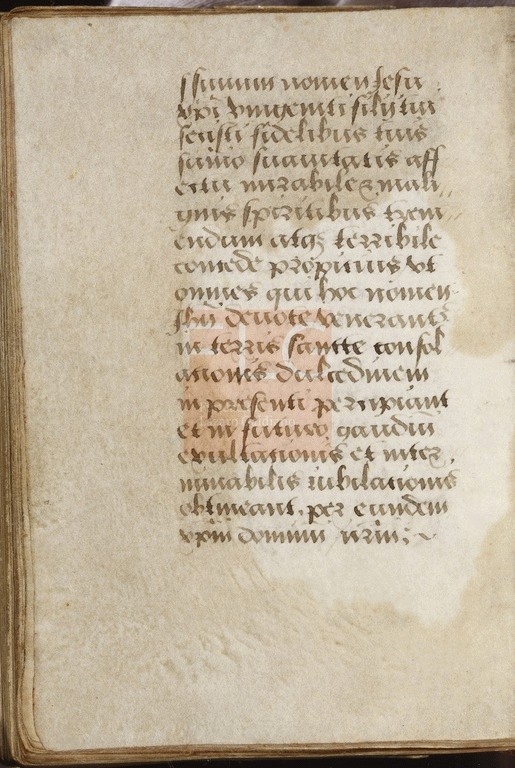 ssimum nomen Jesu
xpi vnigeniti filij tui
fecisti fidelibus tuis
sumo suauitatis aff
ectu mirabile & mali
gnis spiritibus trem
endum atqз terribile
concede propitius vt
omnes qui hoc nomen
Jhu deuote venerantᷣ
in terris sancte consol
ationis dulcedinem
in presenti percipiant
et in futuro gaudiu
exultationis et inter
minabilis iubilationis
obtineant. per eundem
xpm dominu nrm: